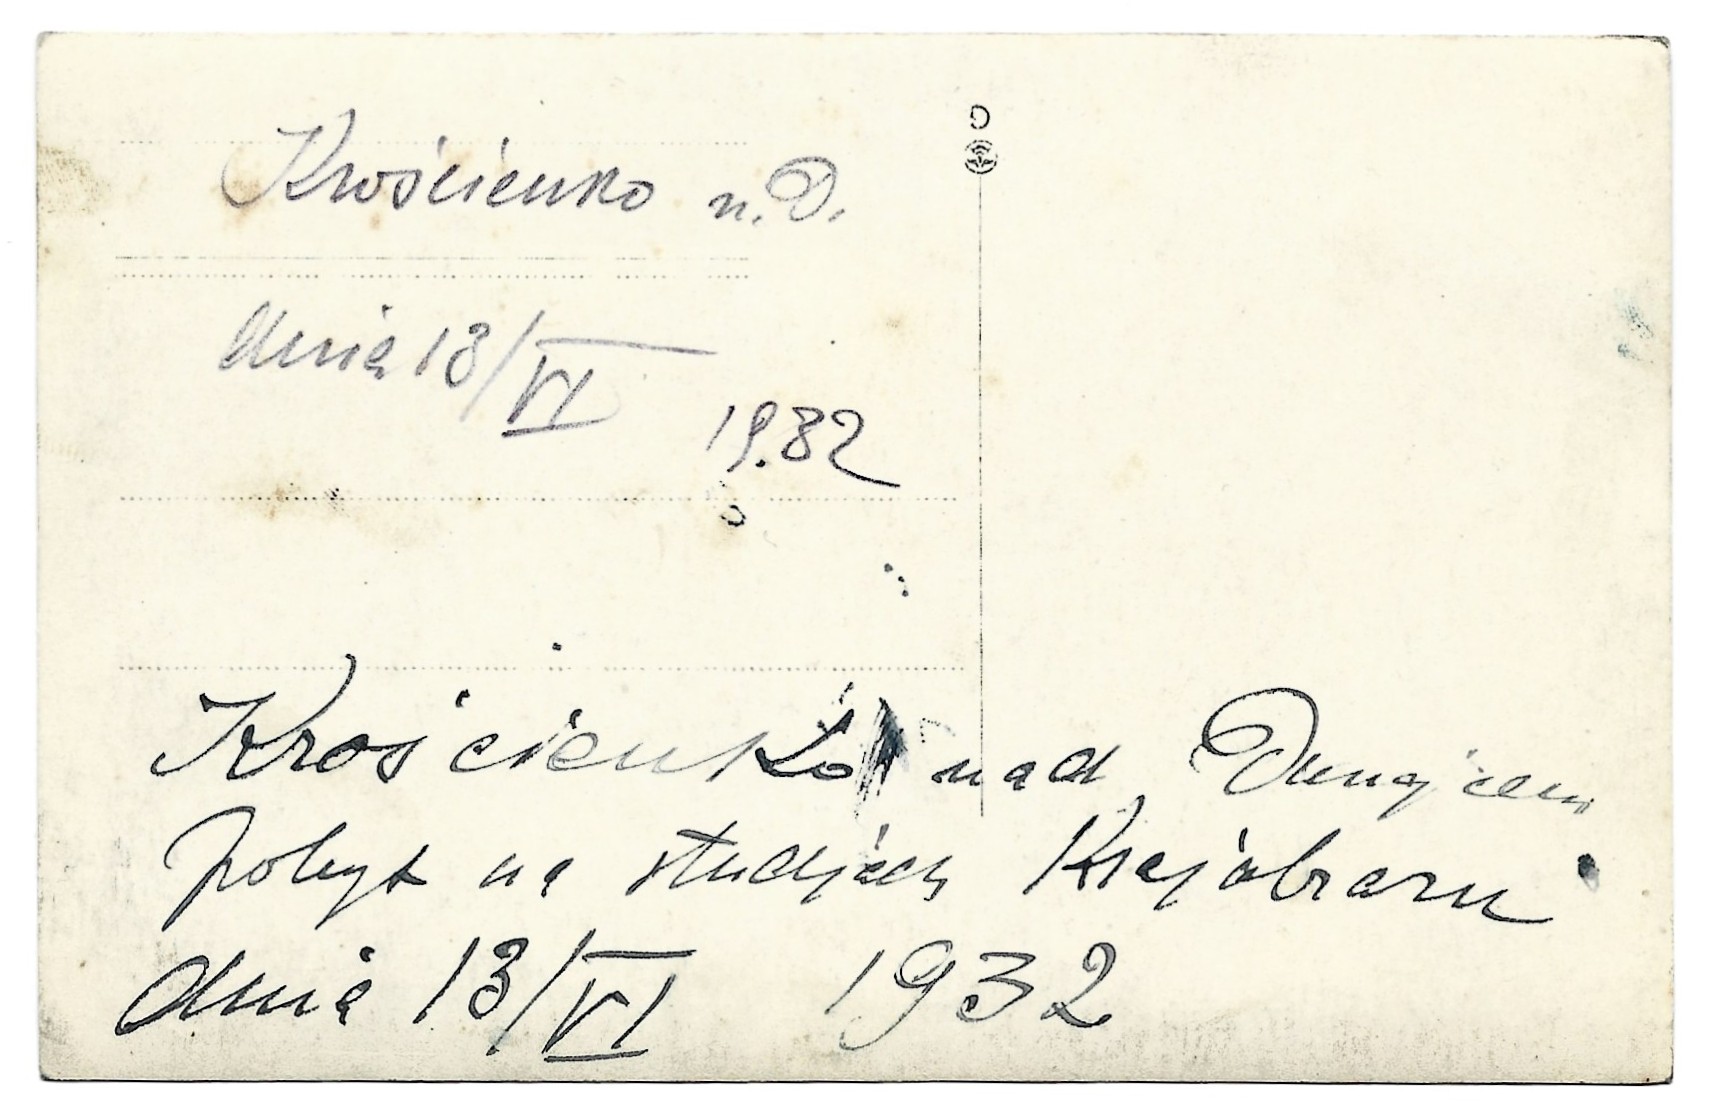 Krościenko n. D.
dnia 13/VI
1932
Krościenko nad Dunajcem
pobyt na studjach Krajobrazu
dnia 13/VI 1932